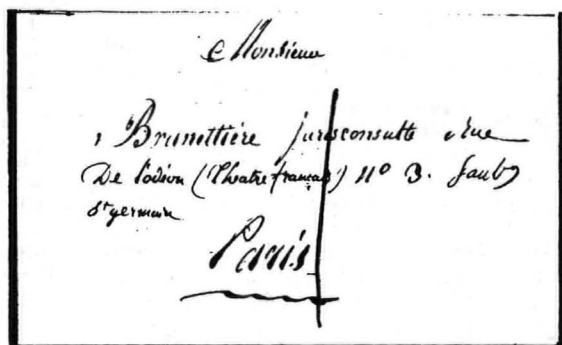 Monsieur
Brunettière jurisconsulte rue
De l'odéon (Theatre français) N° 3. faubg
St germain
Paris